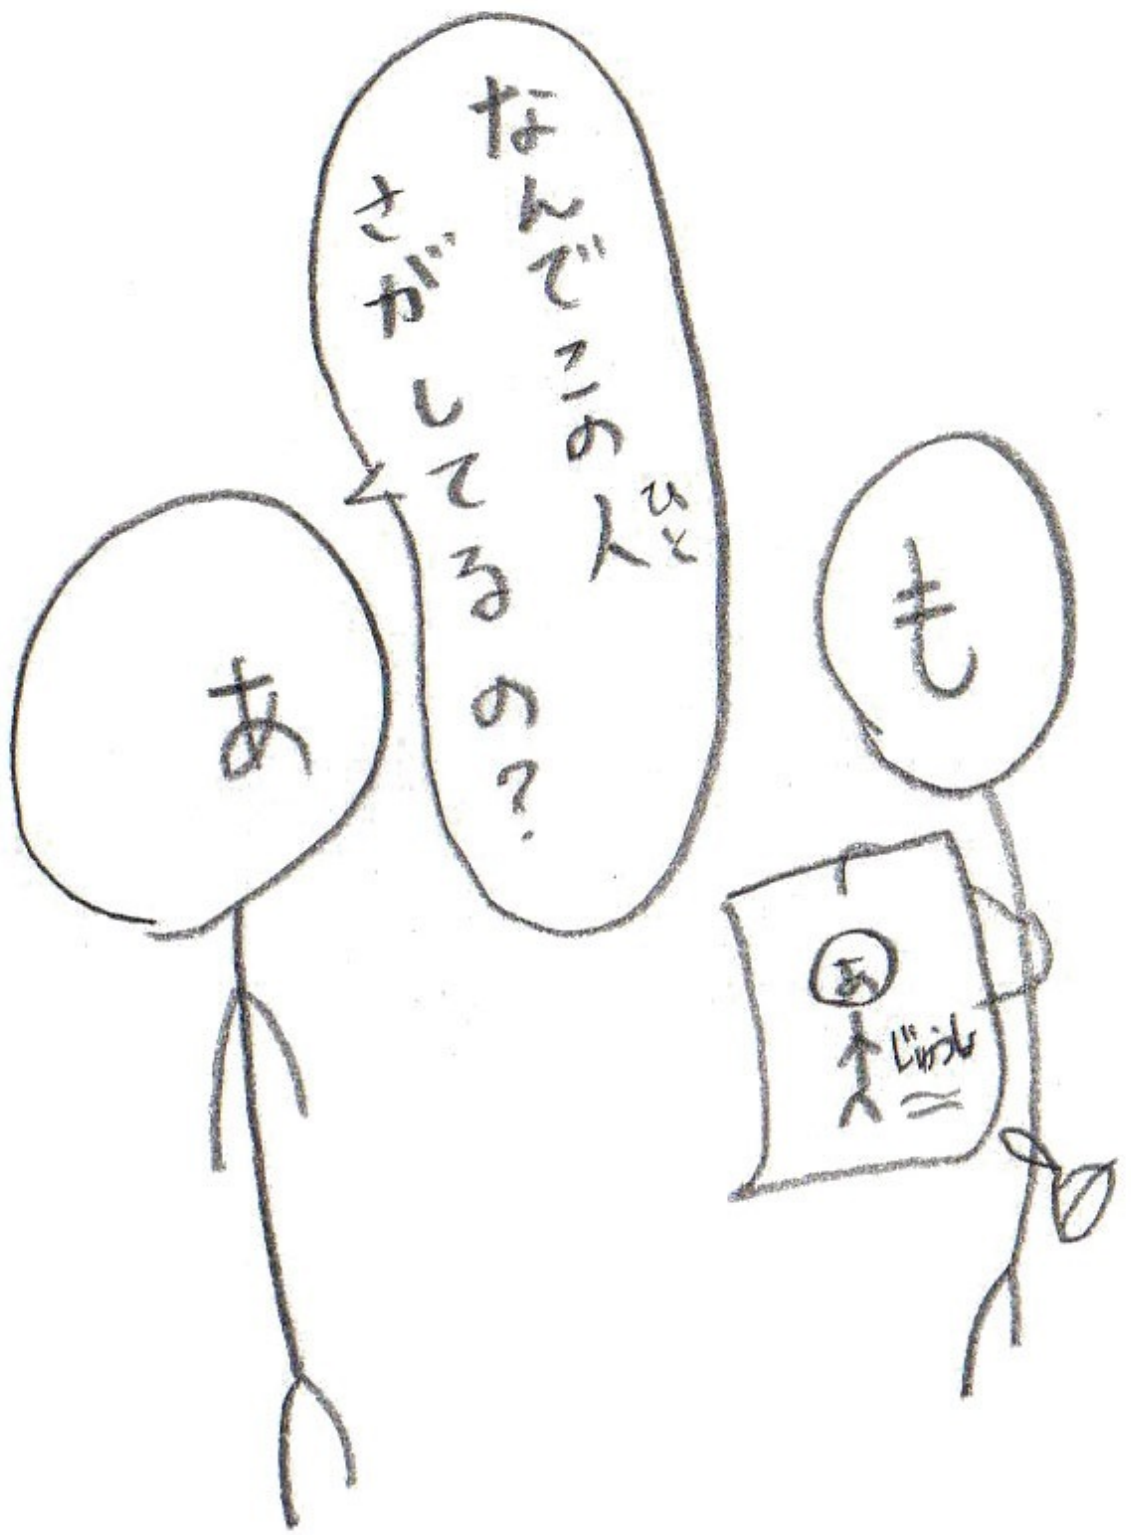 なんでこの人
ひと
さがしてるの?
も
あ
あ
じゅうしょ